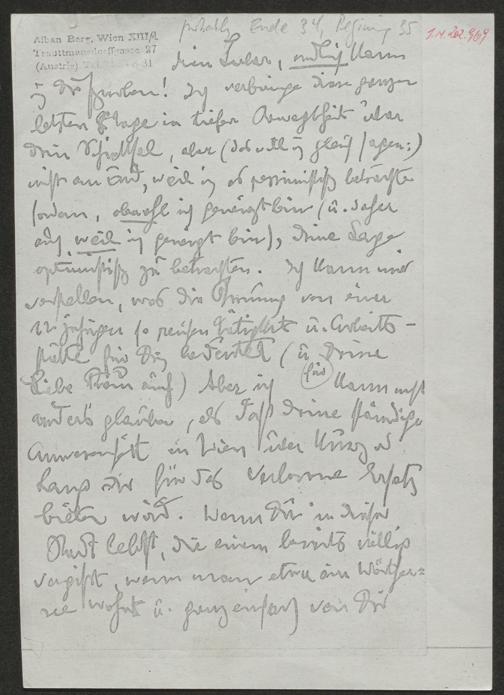 probably Ende 34, Beginn 35
Alban Berg, Wien XIII/1
Trauttmansdorffgasse 27
(Austria) Tel.
Mein Lieber, endlich kann
ich Dir schreiben! Ich verbringe diese ganzen
letzten Tage in tiefer Bewegtheit über
Dein Schicksal, aber (das will ich gleich sagen:)
nicht am End, weil ich es pessimistisch betrachte
sondern, obwohl ich geneigt bin (u. daher
auch weil ich geneigt bin), Deine Lage
optimistisch zu betrachten. Ich kann mir
vorstellen, was die Trennung von einer
12 jährigen so reichen Tätigkeit u. Arbeits-
stätte für Dich bedeutet (u. Deine
liebe Frau auch) Aber ich kann nicht
anders glauben, als daß Deine ständige
Anwesenheit in Wien über kurz od
lang Dir für das Verlorene Ersatz
bieten wird. Wenn Du in dieser
Stadt lebst, die einem bereits völlig
vergißt, wenn man etwa am Wörther-
see wohnt u. ganz einfach von Dir